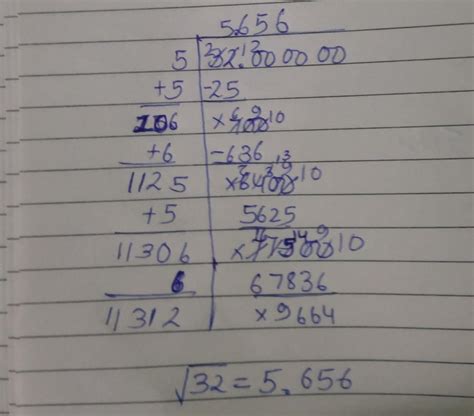 5.656
5 32.00 00 00
+5 -25
106 ×700
+6 -636
1125 ×6400
+5 5625
11306 ×77500
6 67836
11312 ×9664
√32 = 5.656